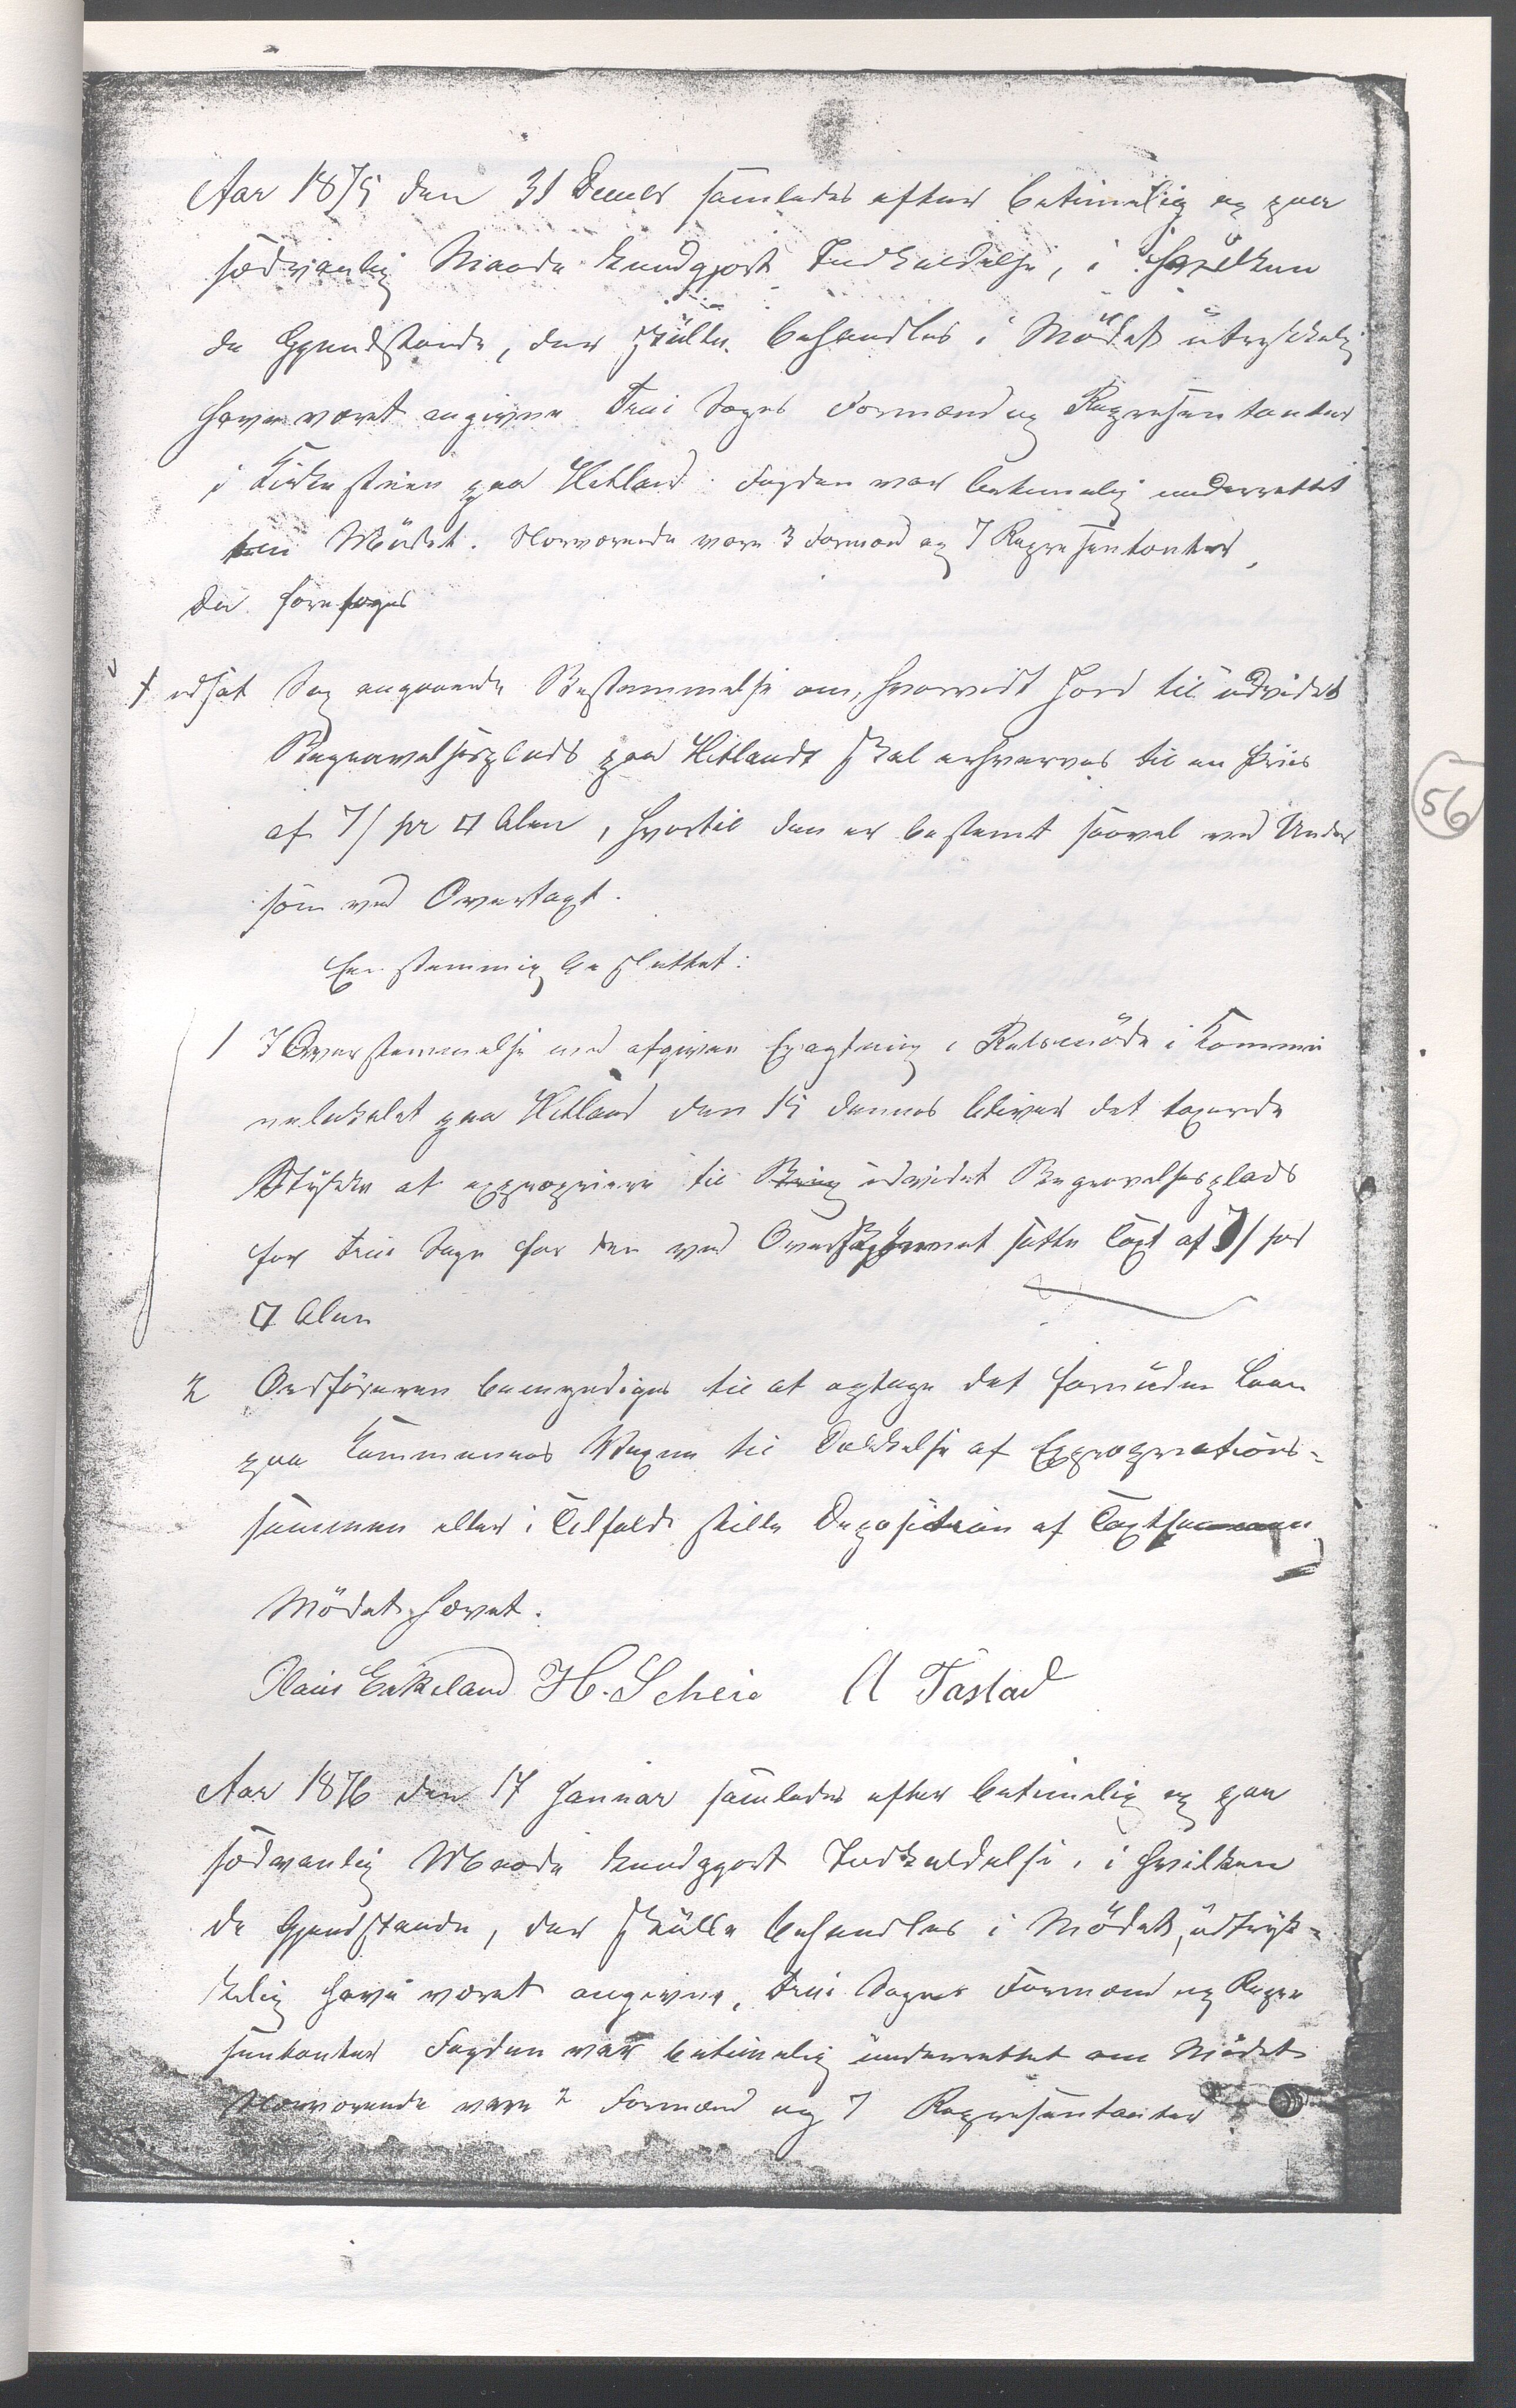 Aar 1875 den 31 Decembr samledes efter betimelig og paa
sædvanlig Maade kundgjort Indkaldelse, i hvilken
de Gjenstande, der skulle behandles i Mødet udtrykkelig
have været angivne Frue Sogns Formænd og Repræsentanter
i Kirkestuen paa Hetland. Fogden var betimelig underrettet
om Mødet. Nærværende vare 3 Formænd og 7 Repræsentanter,
Der foretoges
1 udsat Sag angaaende Bestemmelse om, hvorvidt Jord til udvidet
Begravelsesplads paa Hetland skal erhverves til en Priis
af 7/ pr □ Alen, hvortil den er bestemt saavel ved Under
som ved Overtaxt.
Eenstemmig besluttet:
1 I Overstemmelse med afgiven Eragtning i Retsmøde i Kommu
nelokalet paa Hetland den 15 dennes bliver det taxerede
Stykke at expropriere til udvidet Begravelsesplads
for Frue Sogn for den ved Overskjønnet satte Taxt af 7/ pr
□ Alen
2 Ordføreren bemyndiges til at optage det fornødne Laan
paa Kommunens Vegne til Dækkelse af Expropriations-
summen eller i Tilfælde stille Deposition af Taxtsummen
Mødet hævet.
Claus Eikeland H. Scheie A Tastad
Aar 1876 den 17 Januar samledes efter betimelig og paa
sædvanlig Maade kundgjort Indkaldelse, i hvilken
de Gjenstande, der skulle behandles i Mødet, udtryk-
kelig have været angivne, Frue Sogns Formænd og Repræ
sentanter Fogden var betimelig underrettet om Mødet
Nærværende vare 2 Formænd og 7 Repræsentanter
56